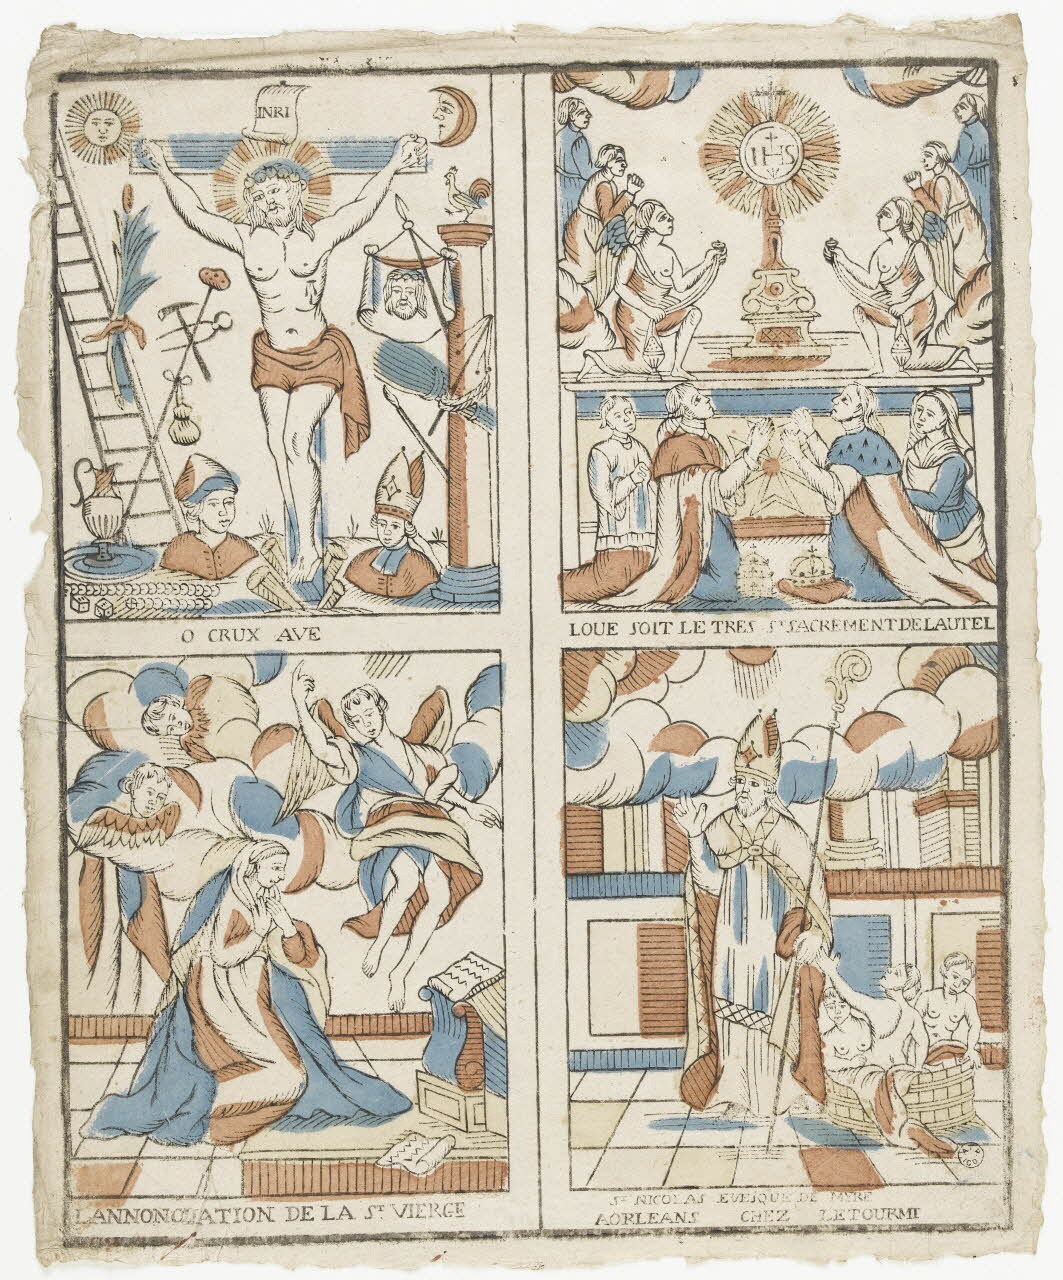 INRI
IHS
O CRUX AVE
LOUE SOIT LE TRES St SACREMENT DE LAUTEL
LANNONCIATION DE LA St VIERGE
St NICOLAS EVESQUE DE MYRE
AORLEANS CHEZ LETOURMI